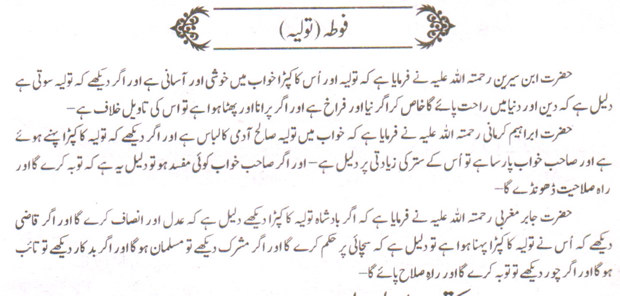 فوطہ (تولیہ)
حضرت ابن سیرین رحمتہ اللہ علیہ نے فرمایا ہے کہ تولیہ اور اُس کا کپڑا خواب میں خوشی اور آسانی ہے اور اگر دیکھے کہ تولیہ سوتی ہے
دلیل ہے کہ دین اور دنیا میں راحت پائے گا خاص کر اگر نیا اور فراخ ہے اور اگر پرانا اور پھٹا ہوا ہے تو اس کی تاویل خلاف ہے–
حضرت ابراہیم کرمانی رحمتہ اللہ علیہ نے فرمایا ہے کہ خواب میں تولیہ صالح آدمی کا لباس ہے اور اگر دیکھے کہ تولیہ کا کپڑا پہنے ہوئے
ہے اور صاحب خواب پارسا ہے تو اُس کے ستر کی زیادتی پر دلیل ہے– اور اگر صاحب خواب کوئی مفسد ہو تو دلیل یہ ہے کہ توبہ کرے گا اور
راہ صلاحیت ڈھونڈے گا–
حضرت جابر مغربی رحمتہ اللہ علیہ نے فرمایا ہے کہ اگر بادشاہ تولیہ کا کپڑا دیکھے دلیل ہے کہ عدل اور انصاف کرے گا اور اگر قاضی
دیکھے کہ اُس نے تولیہ کا کپڑا پہنا ہوا ہے تو دلیل ہے کہ سچائی پر حکم کرے گا اور اگر مشرک دیکھے تو مسلمان ہو گا اور اگر بدکار دیکھے تو تائب
ہو گا اور اگر چور دیکھے تو توبہ کرے گا اور راہ صلاح پائے گا–